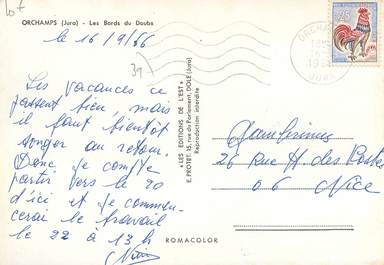 lot
ORCHAMPS (Jura) - Les Bords du Doubs
le 16/9/66
39
Les vacances ce
passent bien, mais
il faut bientôt
songer au retour.
Donc je compte
partir vers le 20
d'ici et je commen-
cerai le travail
le 22 à 13h
« LES EDITIONS DE L'EST »
E. PROTET, 15, rue du Parlement, DOLE (Jura)
Reproduction interdite
ROMACOLOR
0,25
JURA
Gambrinus
26 Rue H. des Postes
06 Nice